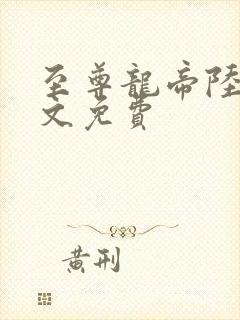 至尊龍帝陸
文免費
黄刑